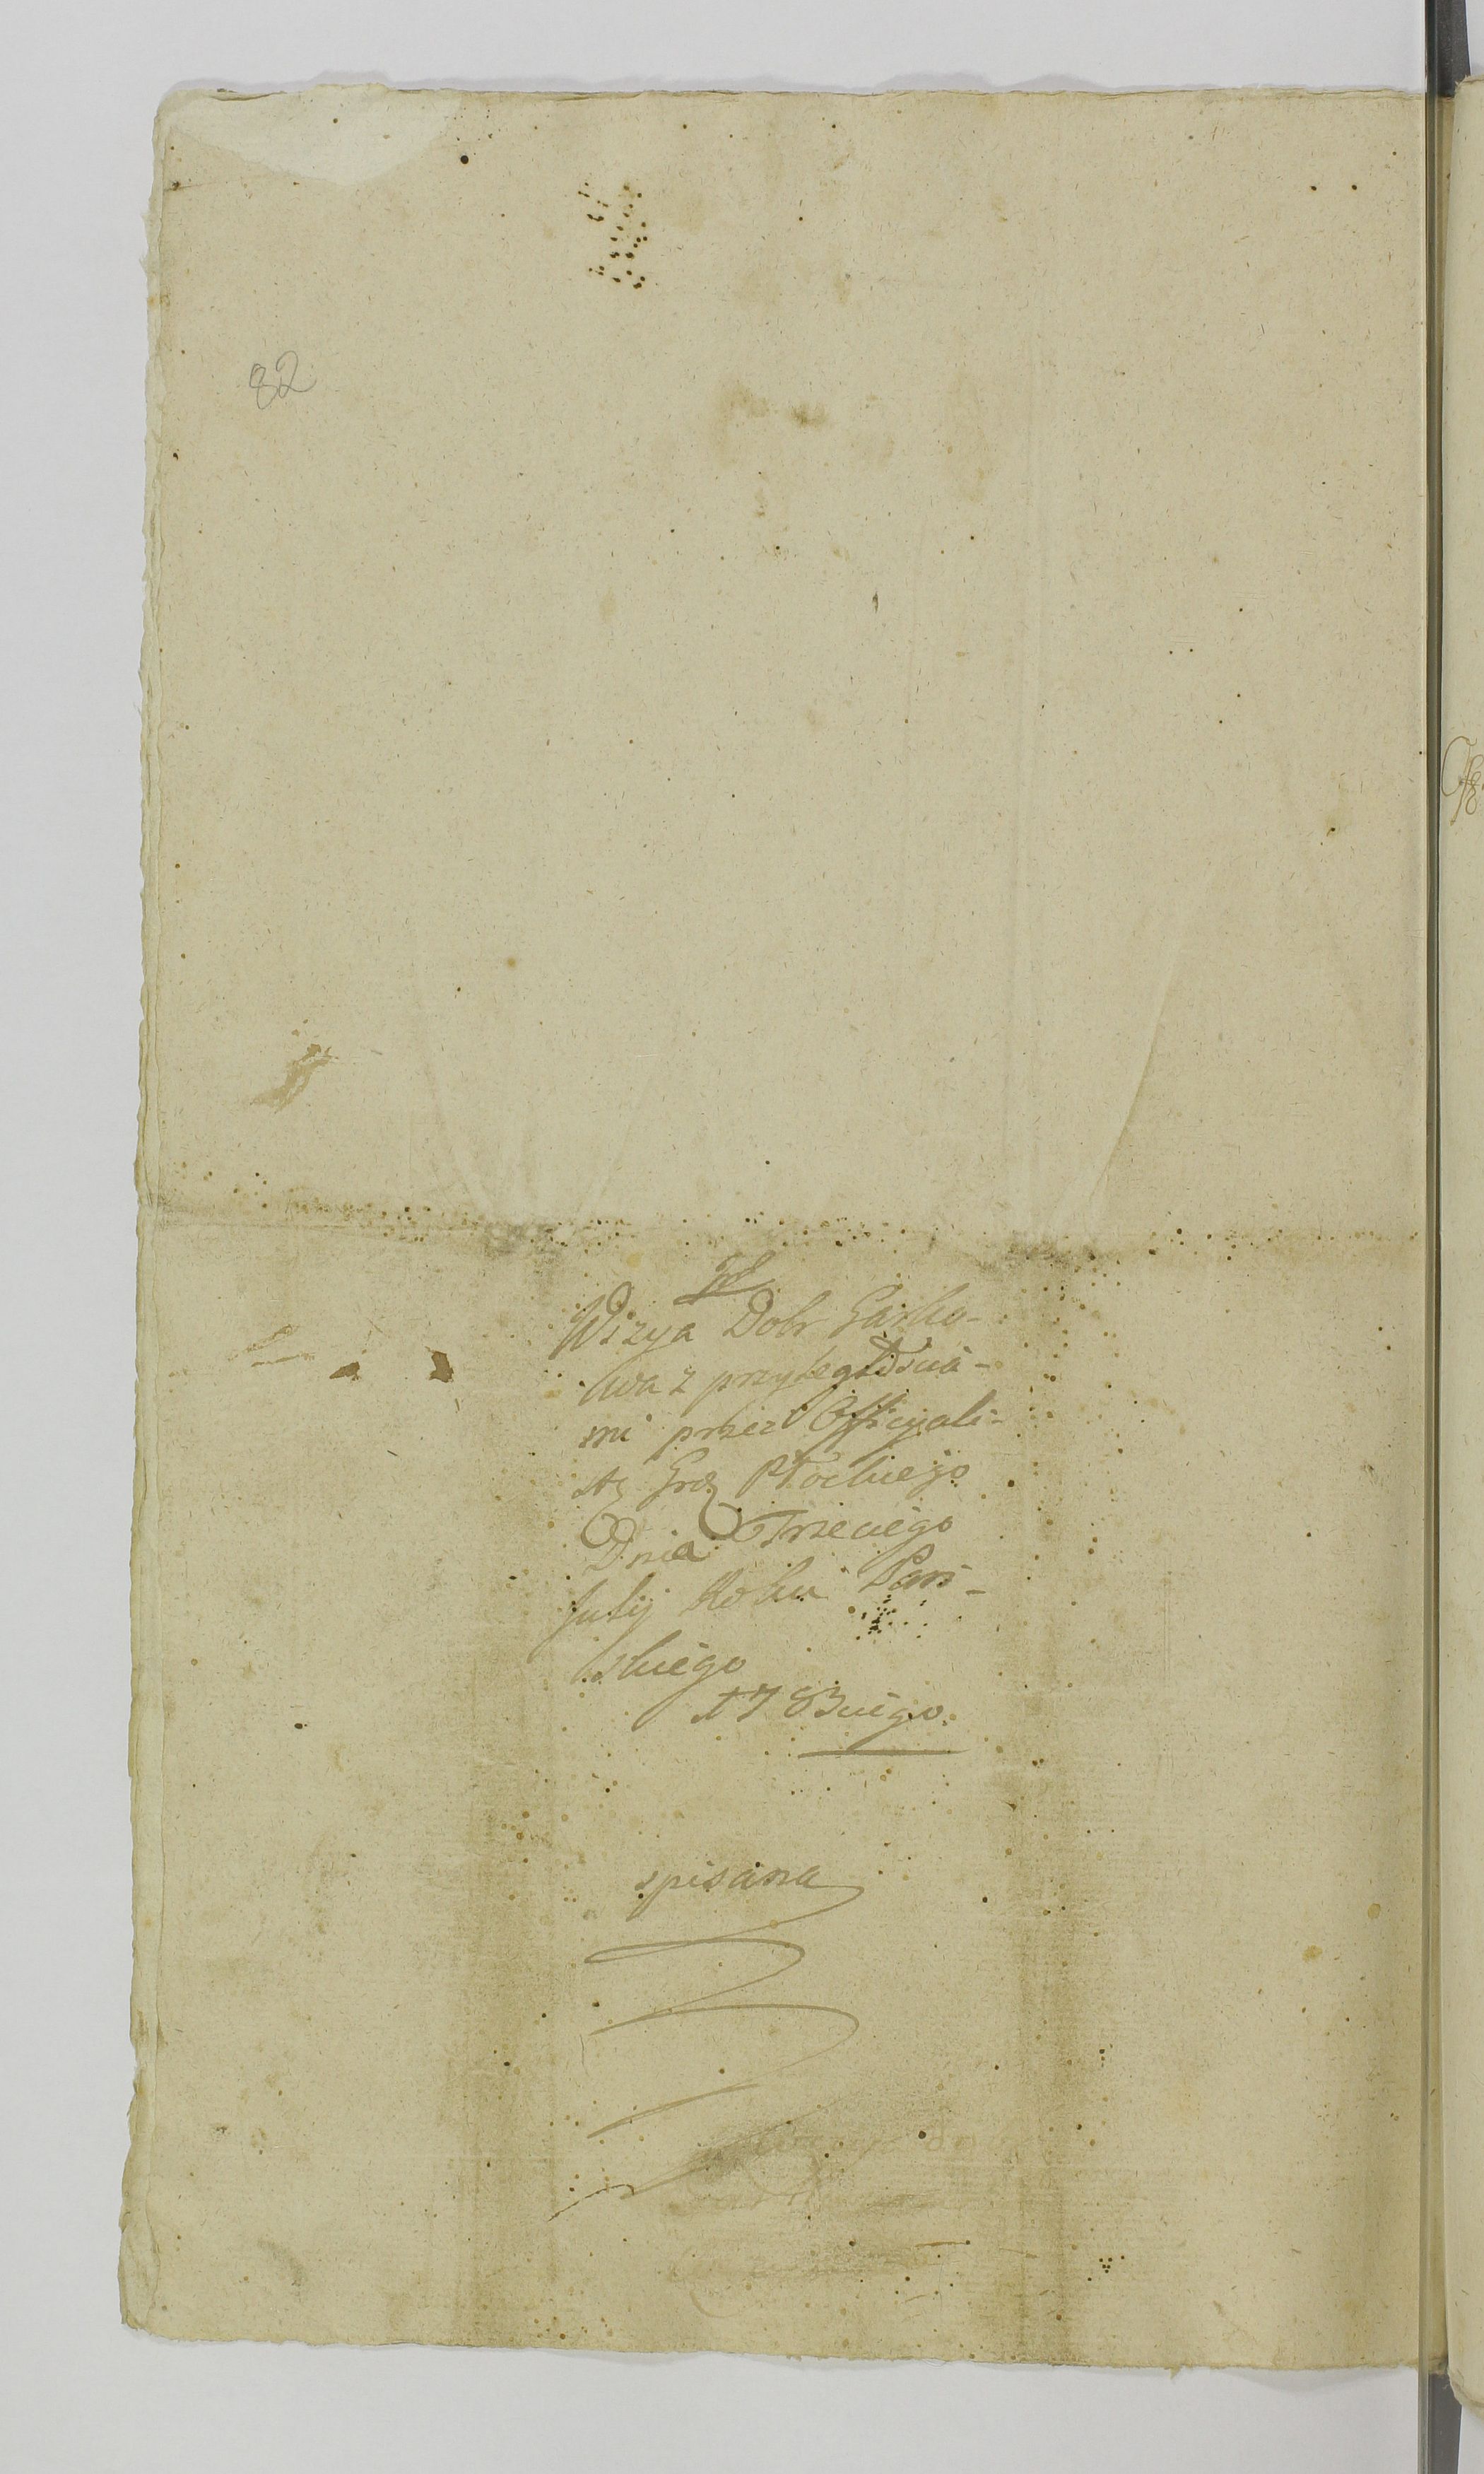 82
Wizya Dobr Garko-
wa z przyległoscia-
mi przez Officyali-
stę Grdz Płockiego
Dnia Trzeciego
Julij Roku Pań-
skiego
1783ciego.
spisana